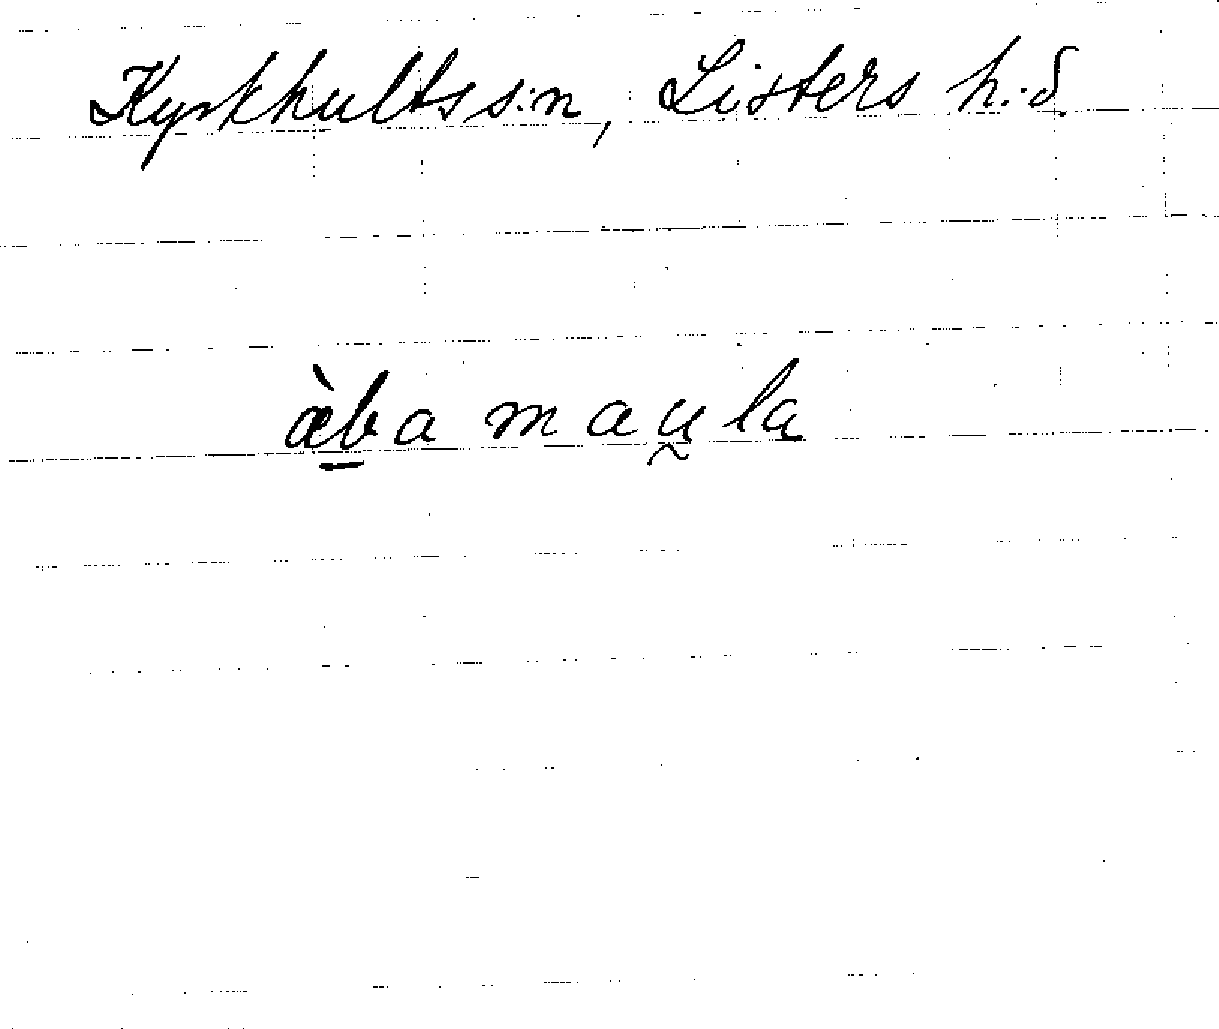 Kyrkhults s:n, Listers h:d.
æ̀ba mau̯la